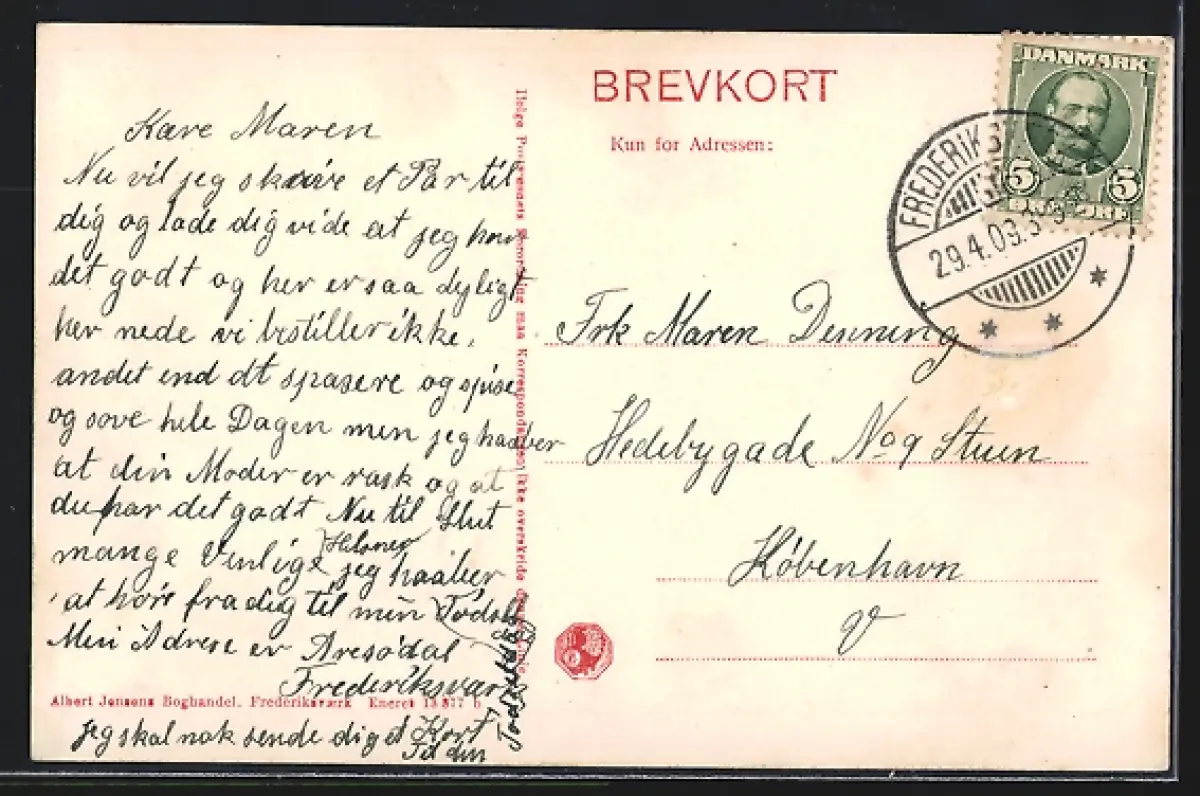 Kære Maren
Nu vil jeg skrive et Par til
dig og lade dig vide at jeg har
det godt og her er saa dyligt
her nede vi bestiller ikke
andet end dt spasere og spise
og sove hele Dagen men jeg haaber
at din Moder er rask og at
du har det godt Nu til Slut
mange Venlige Hilsner jeg haaber
at høre fra dig til min Fødsels
dag
Min Adrese er Aresødal
Frederiksværk
jeg skal nok sende dig et Kort
Til din
Albert Jensens Boghandel, Frederiksværk Eneret 13877 b
Ifølge Postvæsnets Forordning maa Korrespondancen ikke overskride denne Linie
BREVKORT
Kun for Adressen:
DANMARK
5 5
ØRE
FREDERIKS
29.4.09.3
Frk Maren Denning
Hedebygade No 9 Stuen
København
V